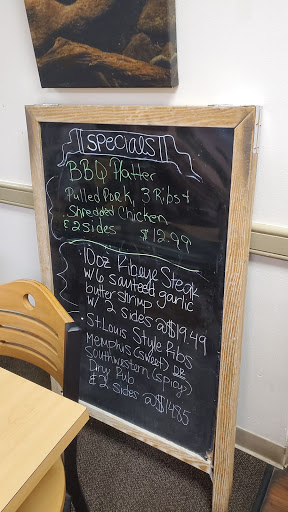 Specials
BBQ Platter
Pulled Pork, 3 Ribs +
Shredded Chicken
& 2 sides $12.99
• 10oz Ribeye Steak
w/ 6 sauteed garlic
butter shrimp
w/ 2 sides @ $19.49
• St Louis Style Ribs
Memphis (sweet) OR
Southwestern (spicy)
Dry Rub
& 2 sides @ $14.85